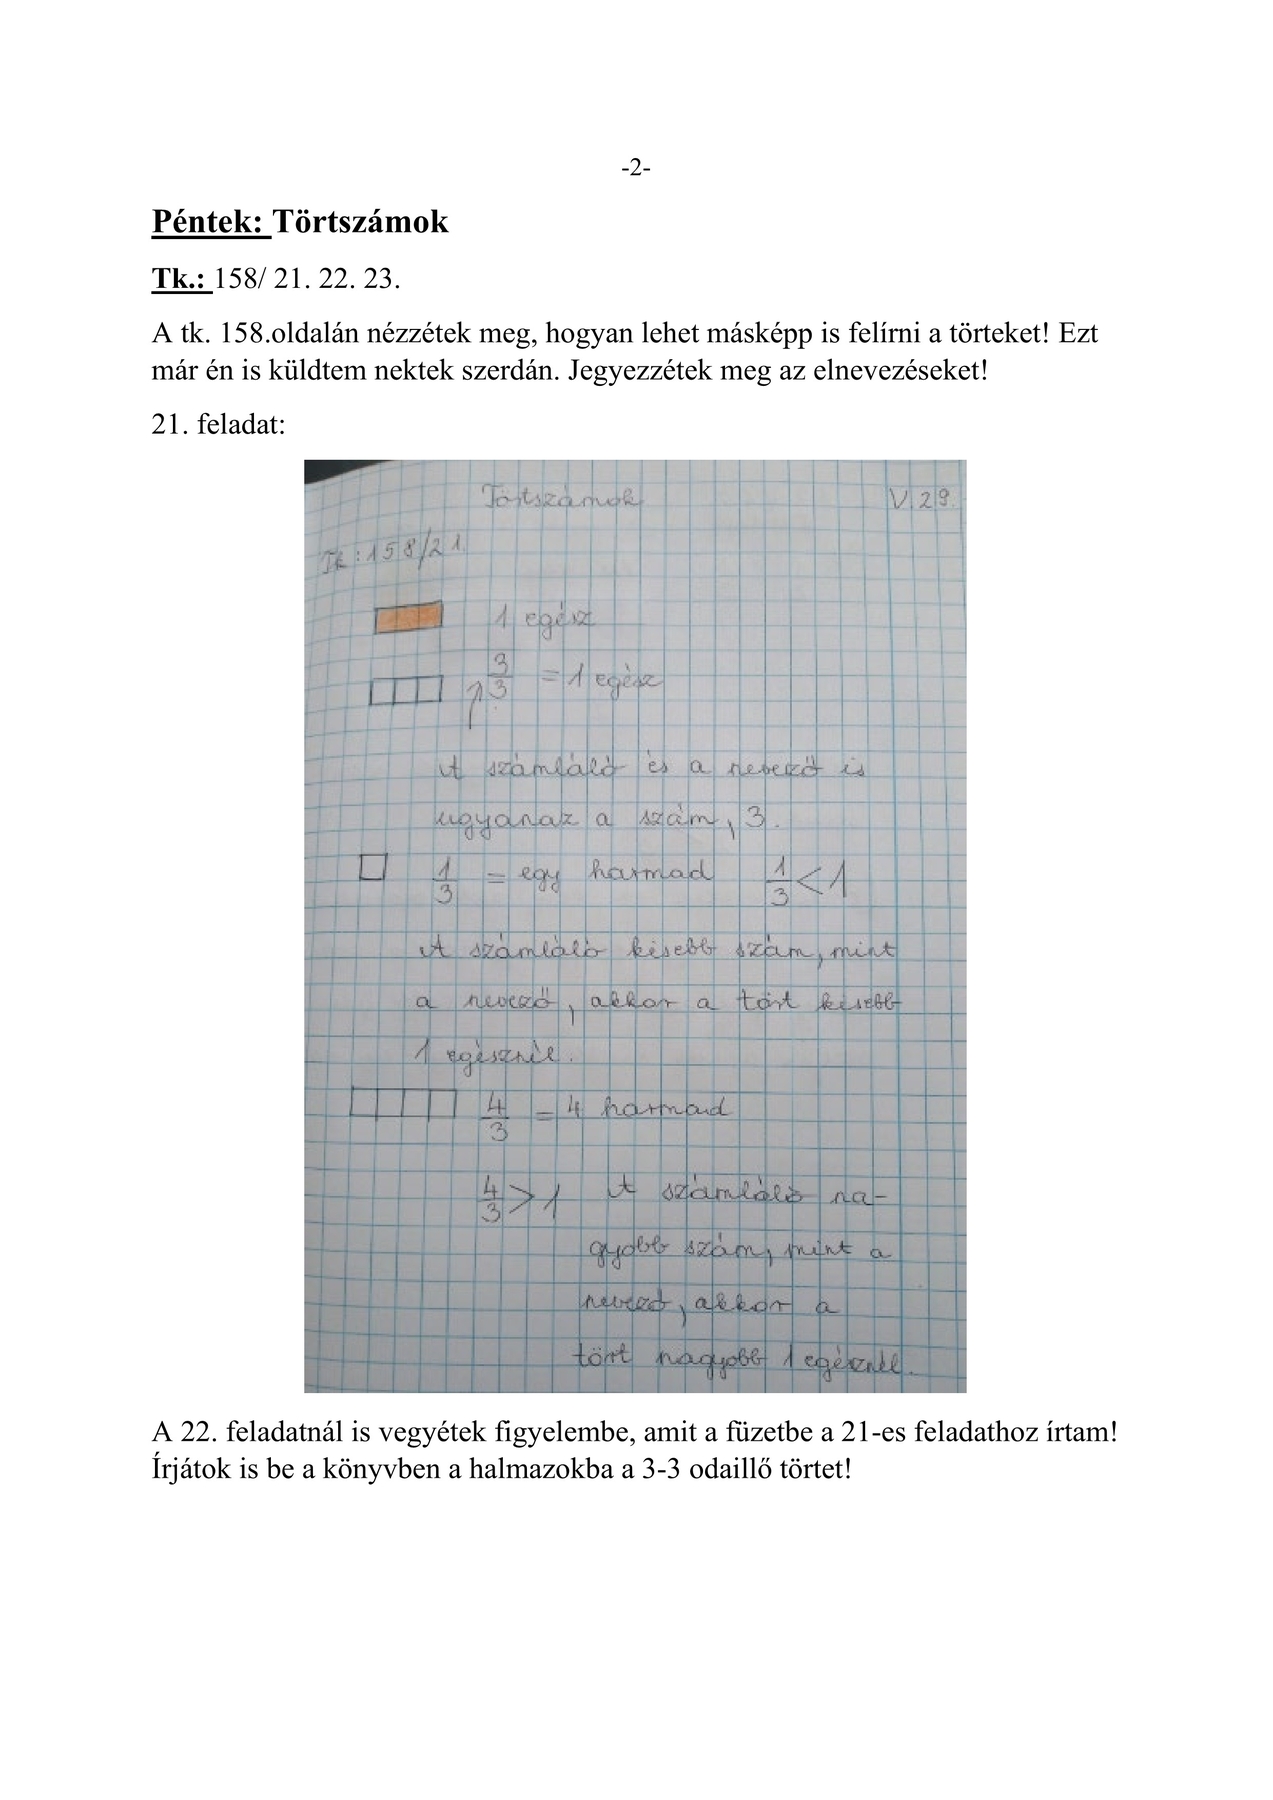 -2-
Péntek: Törtszámok
Tk.: 158/ 21. 22. 23.
A tk. 158.oldalán nézzétek meg, hogyan lehet másképp is felírni a törteket! Ezt
már én is küldtem nektek szerdán. Jegyezzétek meg az elnevezéseket!
21. feladat:
Törtszámok V.29.
Tk:158/21.
1 egész
3/3 = 1 egész
A számláló és a nevező is
ugyanaz a szám, 3.
1/3 = egy harmad 1/3 < 1
A számláló kisebb szám, mint
a nevező, akkor a tört kisebb
1 egésznél.
4/3 = 4 harmad
4/3 > 1 A számláló na-
gyobb szám, mint a
nevező, akkor a
tört nagyobb 1 egésznél.
A 22. feladatnál is vegyétek figyelembe, amit a füzetbe a 21-es feladathoz írtam!
Írjátok is be a könyvben a halmazokba a 3-3 odaillő törtet!